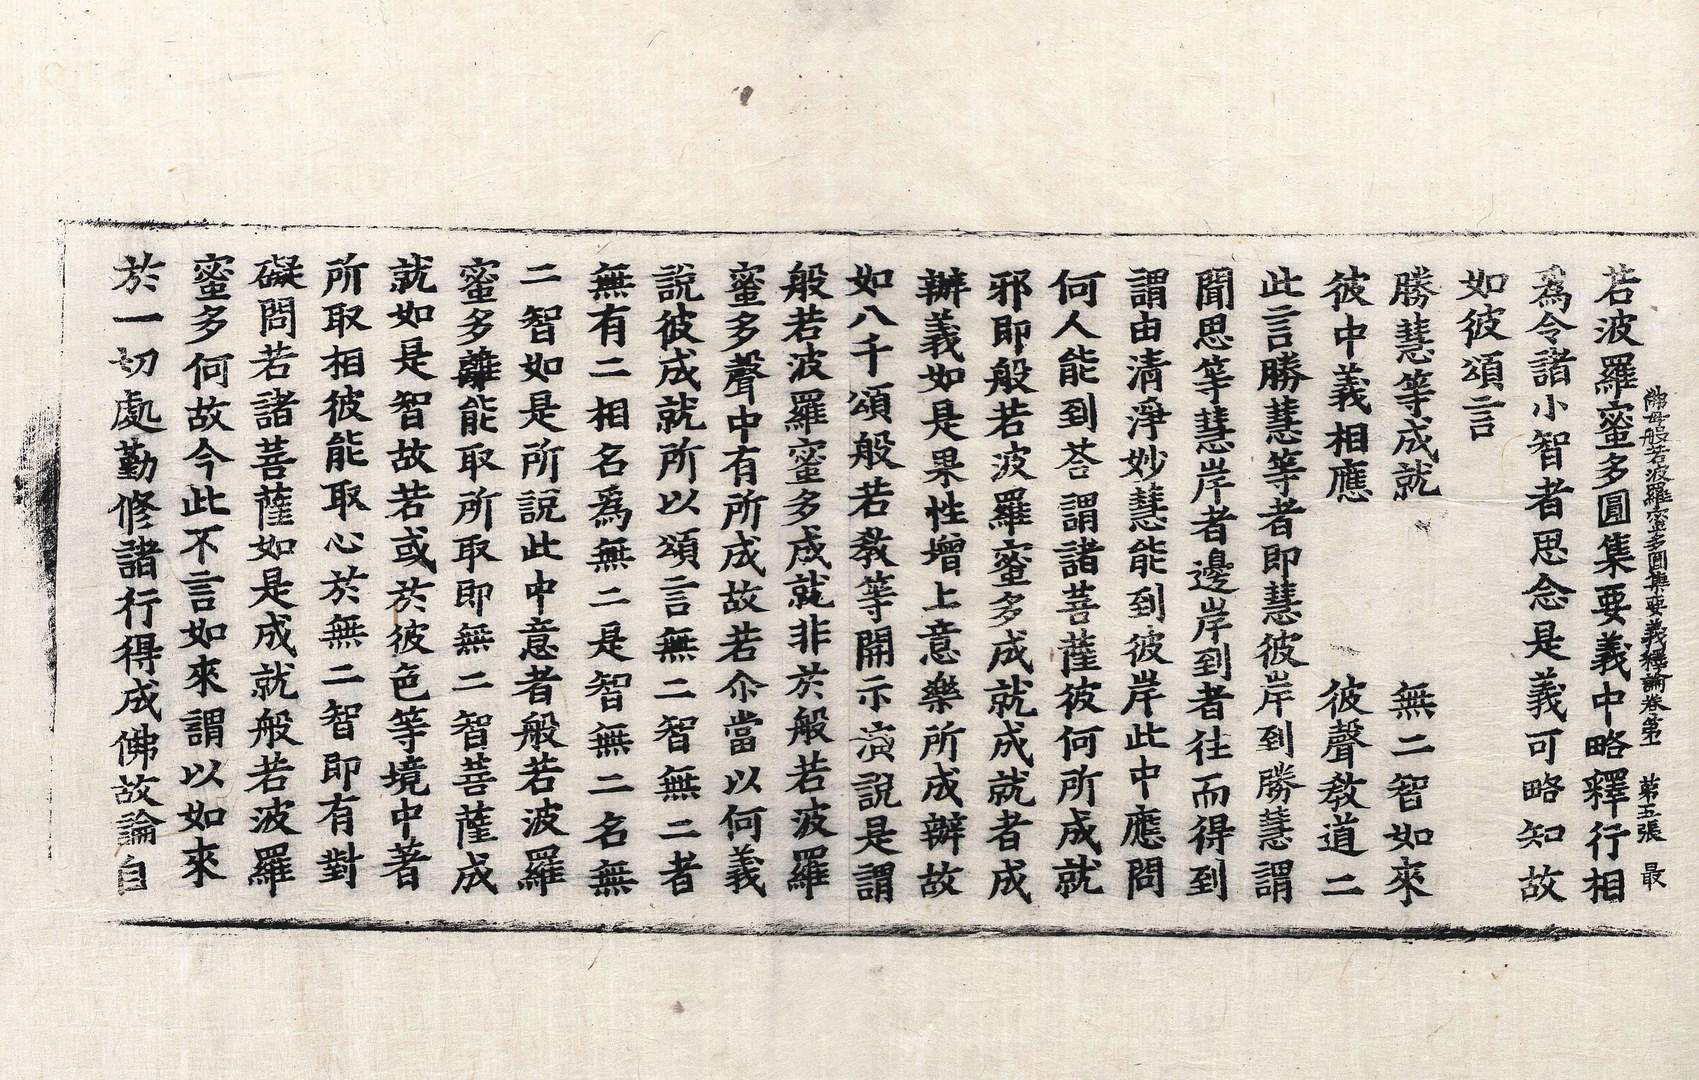 佛母般若波羅蜜多圓集要義釋論卷第一 第五張 最
若波羅蜜多圓集要義中略釋行相
爲令諸小智者思念是義可略知故
如彼頌言
勝慧等成就 無二智如來
彼中義相應 彼聲教道二
此言勝慧等者即慧彼岸到勝慧謂
聞思等慧岸者邊岸到者往而得到
謂由清淨妙慧能到彼岸此中應問
何人能到荅謂諸菩薩彼何所成就
邪即般若波羅蜜多成就成就者成
辦義如是果性增上意樂所成辦故
如八千頌般若教等開示演說是謂
般若波羅蜜多成就非於般若波羅
蜜多聲中有所成故若尒當以何義
說彼成就所以頌言無二智無二者
無有二相名爲無二是智無二名無
二智如是所說此中意者般若波羅
蜜多離能取所取即無二智菩薩成
就如是智故若或於彼色等境中著
所取相彼能取心於無二智即有對
礙問若諸菩薩如是成就般若波羅
蜜多何故今此不言如來謂以如來
於一切處勤修諸行得成佛故論自